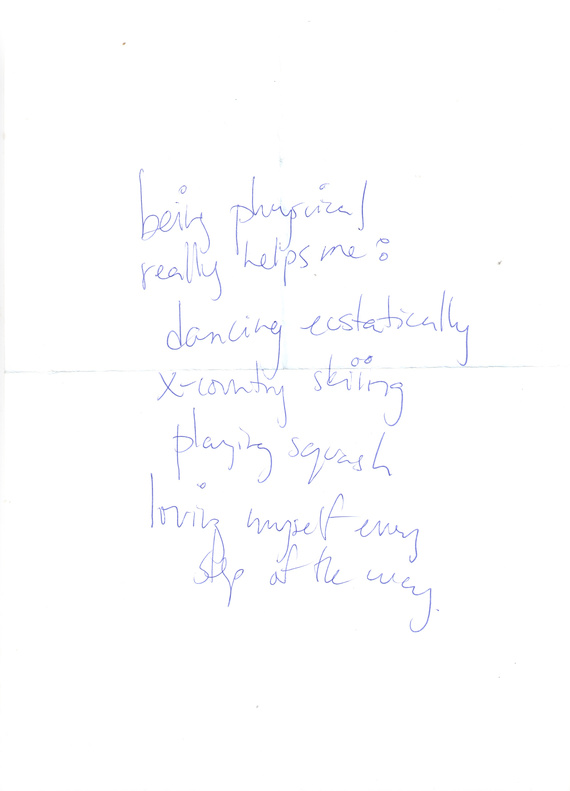 being physical
really helps me:
dancing ecstatically
x-country skiing
playing squash
loving myself every
step of the way.